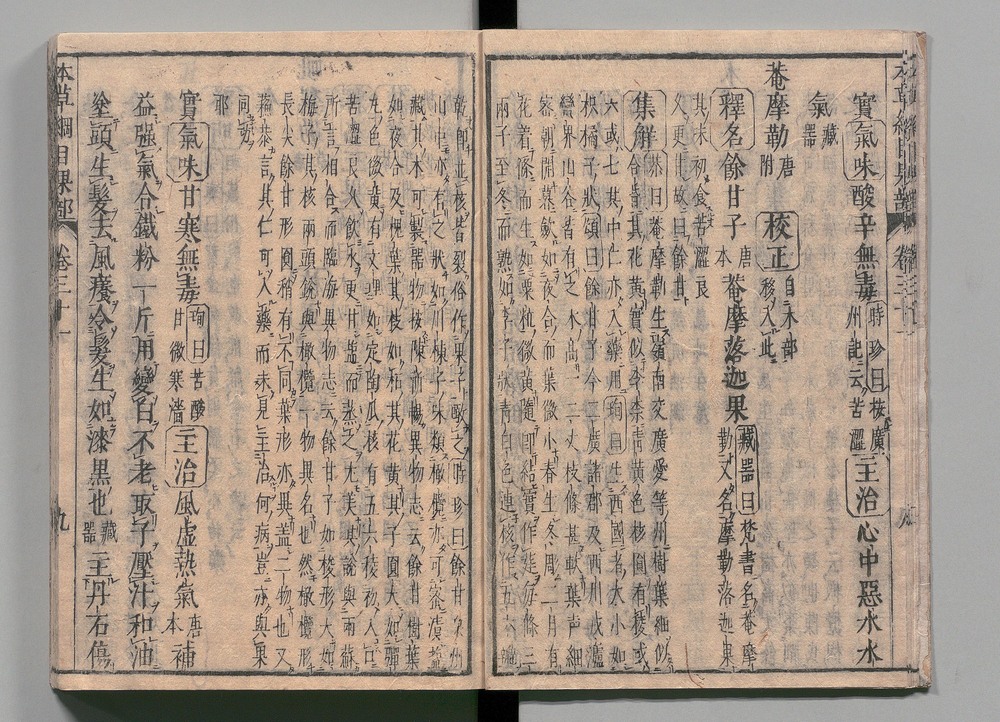 實氣味酸辛無毒時珍曰按廣州記云苦澀主治心中惡水水
氣藏器
菴摩勒唐附 校正自木部移入此
釋名餘甘子唐本菴摩落迦果藏器曰梵書名菴摩勒又名摩勒落迦果
其味初食苦澀良
久更甘故曰餘甘
集解恭曰菴摩勒生嶺南交廣愛等州樹葉細似
合昏其花黃實似李青黃色核圓有稜或六
大或七其中仁亦入藥用珣曰生西國者大小如
枳橘子狀頌曰餘甘子今二廣諸郡及西川戎瀘
蠻界山谷皆有之木高一二丈枝條甚軟葉青細
密朝開暮斂如夜合而葉微小春生冬凋三月有
花着條而生如粟粒微黃隨即結實作莛每條三
兩子至冬而熟如李子狀青白色連核作五六瓣
乾即並核皆裂俗作果子啖之時珍曰餘甘泉州
山中亦有之狀如川楝子味類橄欖亦可蜜漬鹽
藏其木可製器物按陳祈暢異物志云餘甘樹葉
如夜合及槐葉其枝如柘其花黃其子圓大如彈
丸色微黃有文理如定陶瓜核有五六稜初入口
苦澀良久飲水更甘鹽而蒸之尤美其說與兩蘇
所言相合而臨海異物志云餘甘子如梭形大如
梅子其核兩頭銳與橄欖一物異名也然橄欖形
長尖餘甘形圓稍有不同葉形亦異蓋二物也又
蘇恭言其仁可入藥而未見主治何病豈亦與果
同功耶
實氣味甘寒無毒珣曰苦酸甘微寒濇主治風虛熱氣唐本補
益強氣合鐵粉一斤用變白不老取子壓汁和油
塗頭生髮去風癢令髮生如漆黑也藏器主丹石傷
本草綱目果部 卷三十一 九